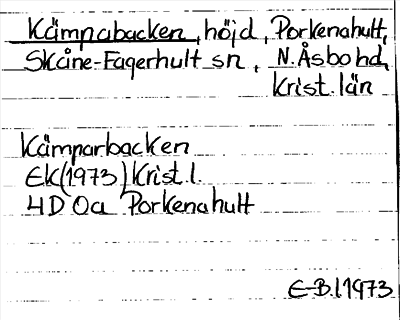 Kämpabacken, höjd, Porkenahult,
Skåne-Fagerhult sn, N. Åsbo hd,
Krist. län
Kämparbacken
EK (1973) Krist. l.
4D Oa Porkenahult
E-B.l 1973